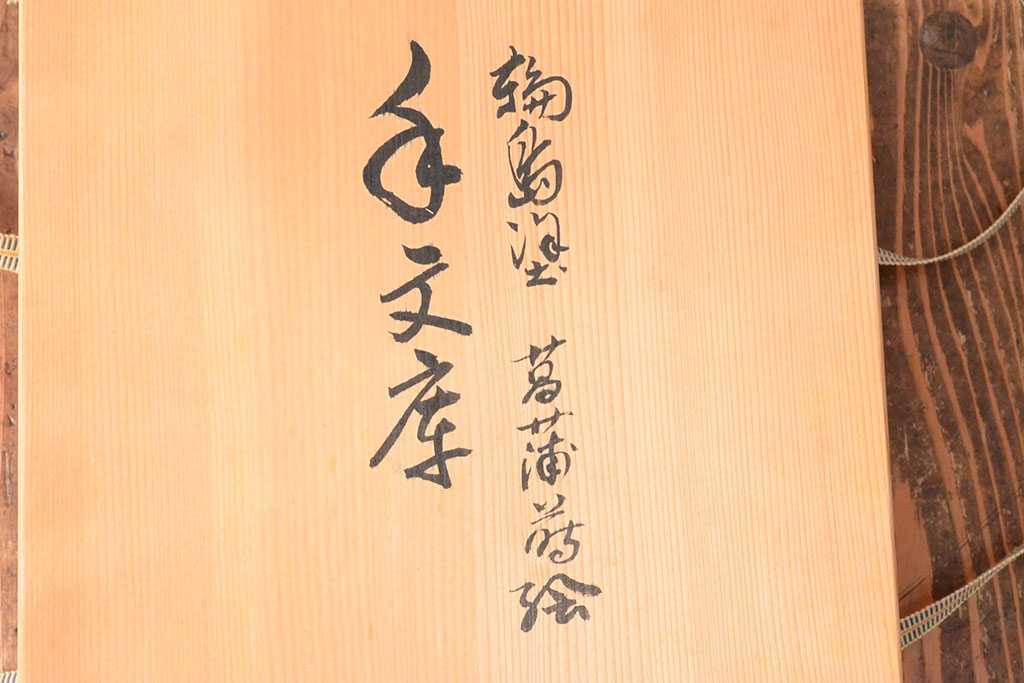 輪島塗 菖蒲蒔絵
手文庫